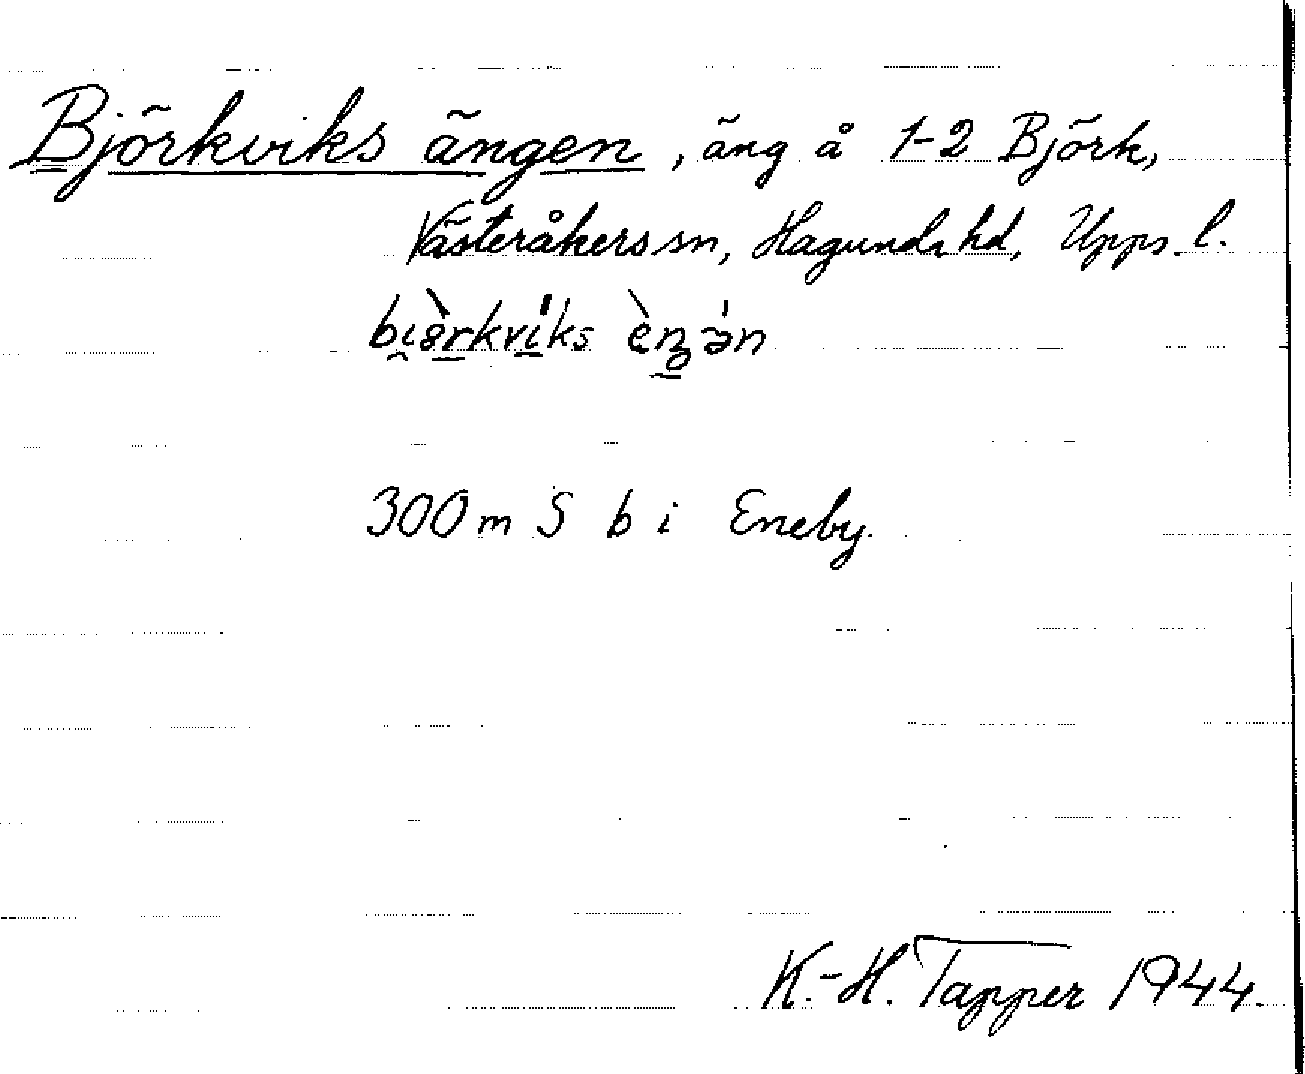 Björkviks ängen, äng å 1-2 Björk,
Västeråkers sn, Hagunda hd, Upps. l.
300 m S b i Eneby.
K.-H. Tapper 1944.